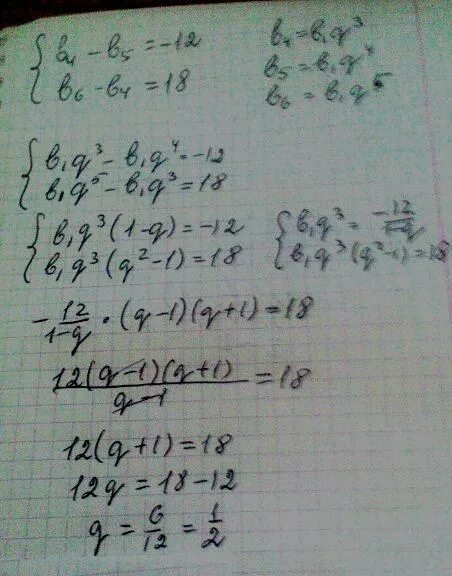 { b₄ − b₅ = −12
b₆ − b₄ = 18
b₄ = b₁q³
b₅ = b₁q⁴
b₆ = b₁q⁵
{ b₁q³ − b₁q⁴ = −12
b₁q⁵ − b₁q³ = 18
{ b₁q³(1−q) = −12
b₁q³(q²−1) = 18
{ b₁q³ = −12/(1−q)
b₁q³(q²−1) = 18
−12/(1−q) · (q−1)(q+1) = 18
12(q−1)(q+1)/(q−1) = 18
12(q+1) = 18
12q = 18−12
q = 6/12 = 1/2